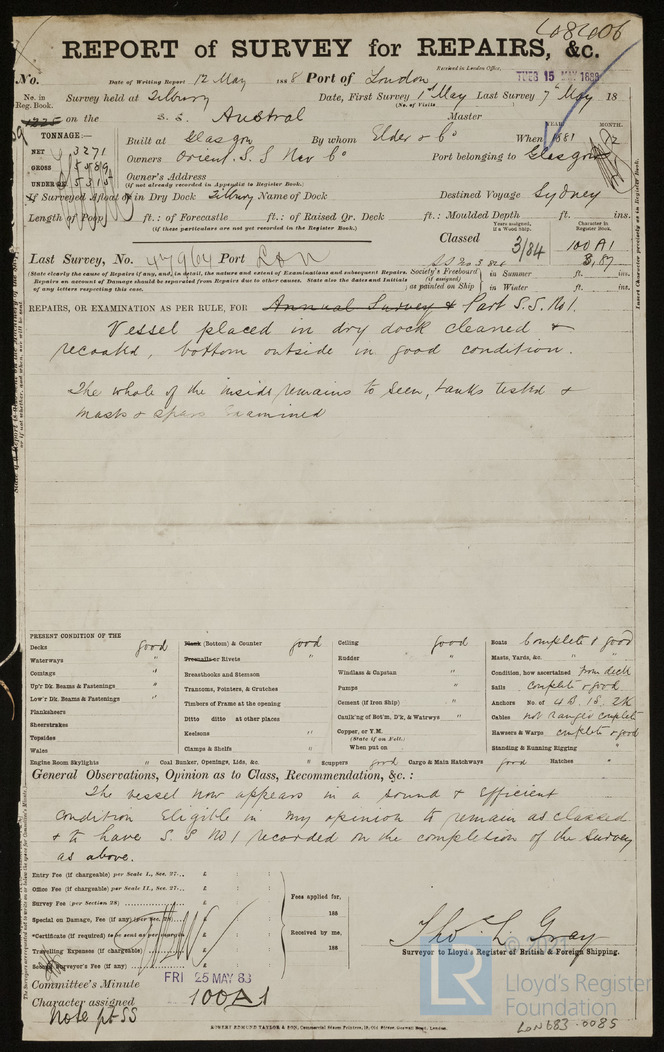 REPORT of SURVEY for REPAIRS, &c.
No.
Date of Writing Report 12 May 1888 Port of London
Received in London Office,
TUES 15 MAY 1888
No. in Reg. Book.
Survey held at Tilbury Date, First Survey 1st May Last Survey 7th May 18
(No. of Visits
on the S.S. Austral Master
TONNAGE:—
NET 3271
GROSS 5589
UNDER DK 5515
Built at Glasgow By whom Elder & Co When 1881 12
YEAR. MONTH.
Owners Orient S.S Nav Co Port belonging to Glasgow
Owner's Address
(if not already recorded in Appendix to Register Book.)
If Surveyed Afloat or in Dry Dock Tilbury Name of Dock Destined Voyage Sydney
Length of Poop ft.: of Forecastle ft.: of Raised Qr. Deck ft.: Moulded Depth ft. ins.
(if these particulars are not yet recorded in the Register Book.)
Years assigned, if a Wood Ship.
Character in Register Book.
Classed 3/84 100 A1
8,87
Last Survey, No. 47964 Port Lon
SS No 3 84
(State clearly the cause of Repairs if any, and, in detail, the nature and extent of Examinations and subsequent Repairs.
Repairs on account of Damage should be separated from Repairs due to other causes. State also the dates and initials
of any letters respecting this case.
Society's Freeboard (if assigned) as painted on Ship
in Summer ft. ins.
in Winter ft. ins.
REPAIRS, OR EXAMINATION AS PER RULE, FOR Annual Survey & Part S.S. No 1.
Vessel placed in dry dock cleaned &
recoated, bottom outside in good condition.
The whole of the inside remains to seen, tanks tested &
masts & spars examined
PRESENT CONDITION OF THE
Decks good
Waterways "
Comings "
Up'r Dk. Beams & Fastenings "
Low'r Dk. Beams & Fastenings "
Planksheers
Sheerstrakes
Topsides
Wales
Engine Room Skylights "
Plank (Bottom) & Counter good
Treenails or Rivets "
Breasthooks and Stemson
Transoms, Pointers, & Crutches
Timbers of the Frame at the opening
Ditto ditto at other places
Keelsons "
Clamps & Shelfs "
Coal Bunker, Openings, Lids, &c. "
Ceiling good
Rudder "
Windlass & Capstan "
Pumps "
Cement (if Iron Ship) "
Caulk'ng of Bot'm, D'k, & Waterwys "
Copper, or Y.M.
(State if on Felt.)
When put on
Scuppers good Cargo & Main Hatchways good Hatches "
Boats complete & good
Masts, Yards, &c. " "
Condition, how ascertained from deck
Sails complete & good
Anchors No. of 4 B. 1S. 2K
Cables not ranged complete
Hawsers & Warps complete & good
Standing & Running Rigging "
General Observations, Opinion as to Class, Recommendation, &c.:
The vessel now appears in a sound & efficient
condition Eligible in my opinion to remain as classed
& to have S.S No 1 recorded on the completion of the survey
as above.
Entry Fee (if chargeable) per Scale I., Sec. 27... £ : :
Office Fee (if chargeable) per Scale II., Sec. 27... £ : :
Survey Fee (per Section 28) £ : :
Special on Damage, Fee (if any) (per Sec. 28) £ : :
*Certificate (if required) to be sent as per margin £ : :
Travelling Expenses (if chargeable) £ : :
Second Surveyor's Fee (if any) £ : :
Fees applied for,
188
Received by me,
188
Tho. L. Gray
Surveyor to Lloyd's Register of British & Foreign Shipping.
Committee's Minute FRI 25 MAY 88
Character assigned 100A1
Note pt SS
ROBERT EDMUND TAYLOR & SON, Commercial Steam Printers, 19, Old Street, Goswell Road, London.
LR
Lloyd's Register
Foundation
LON683-0085